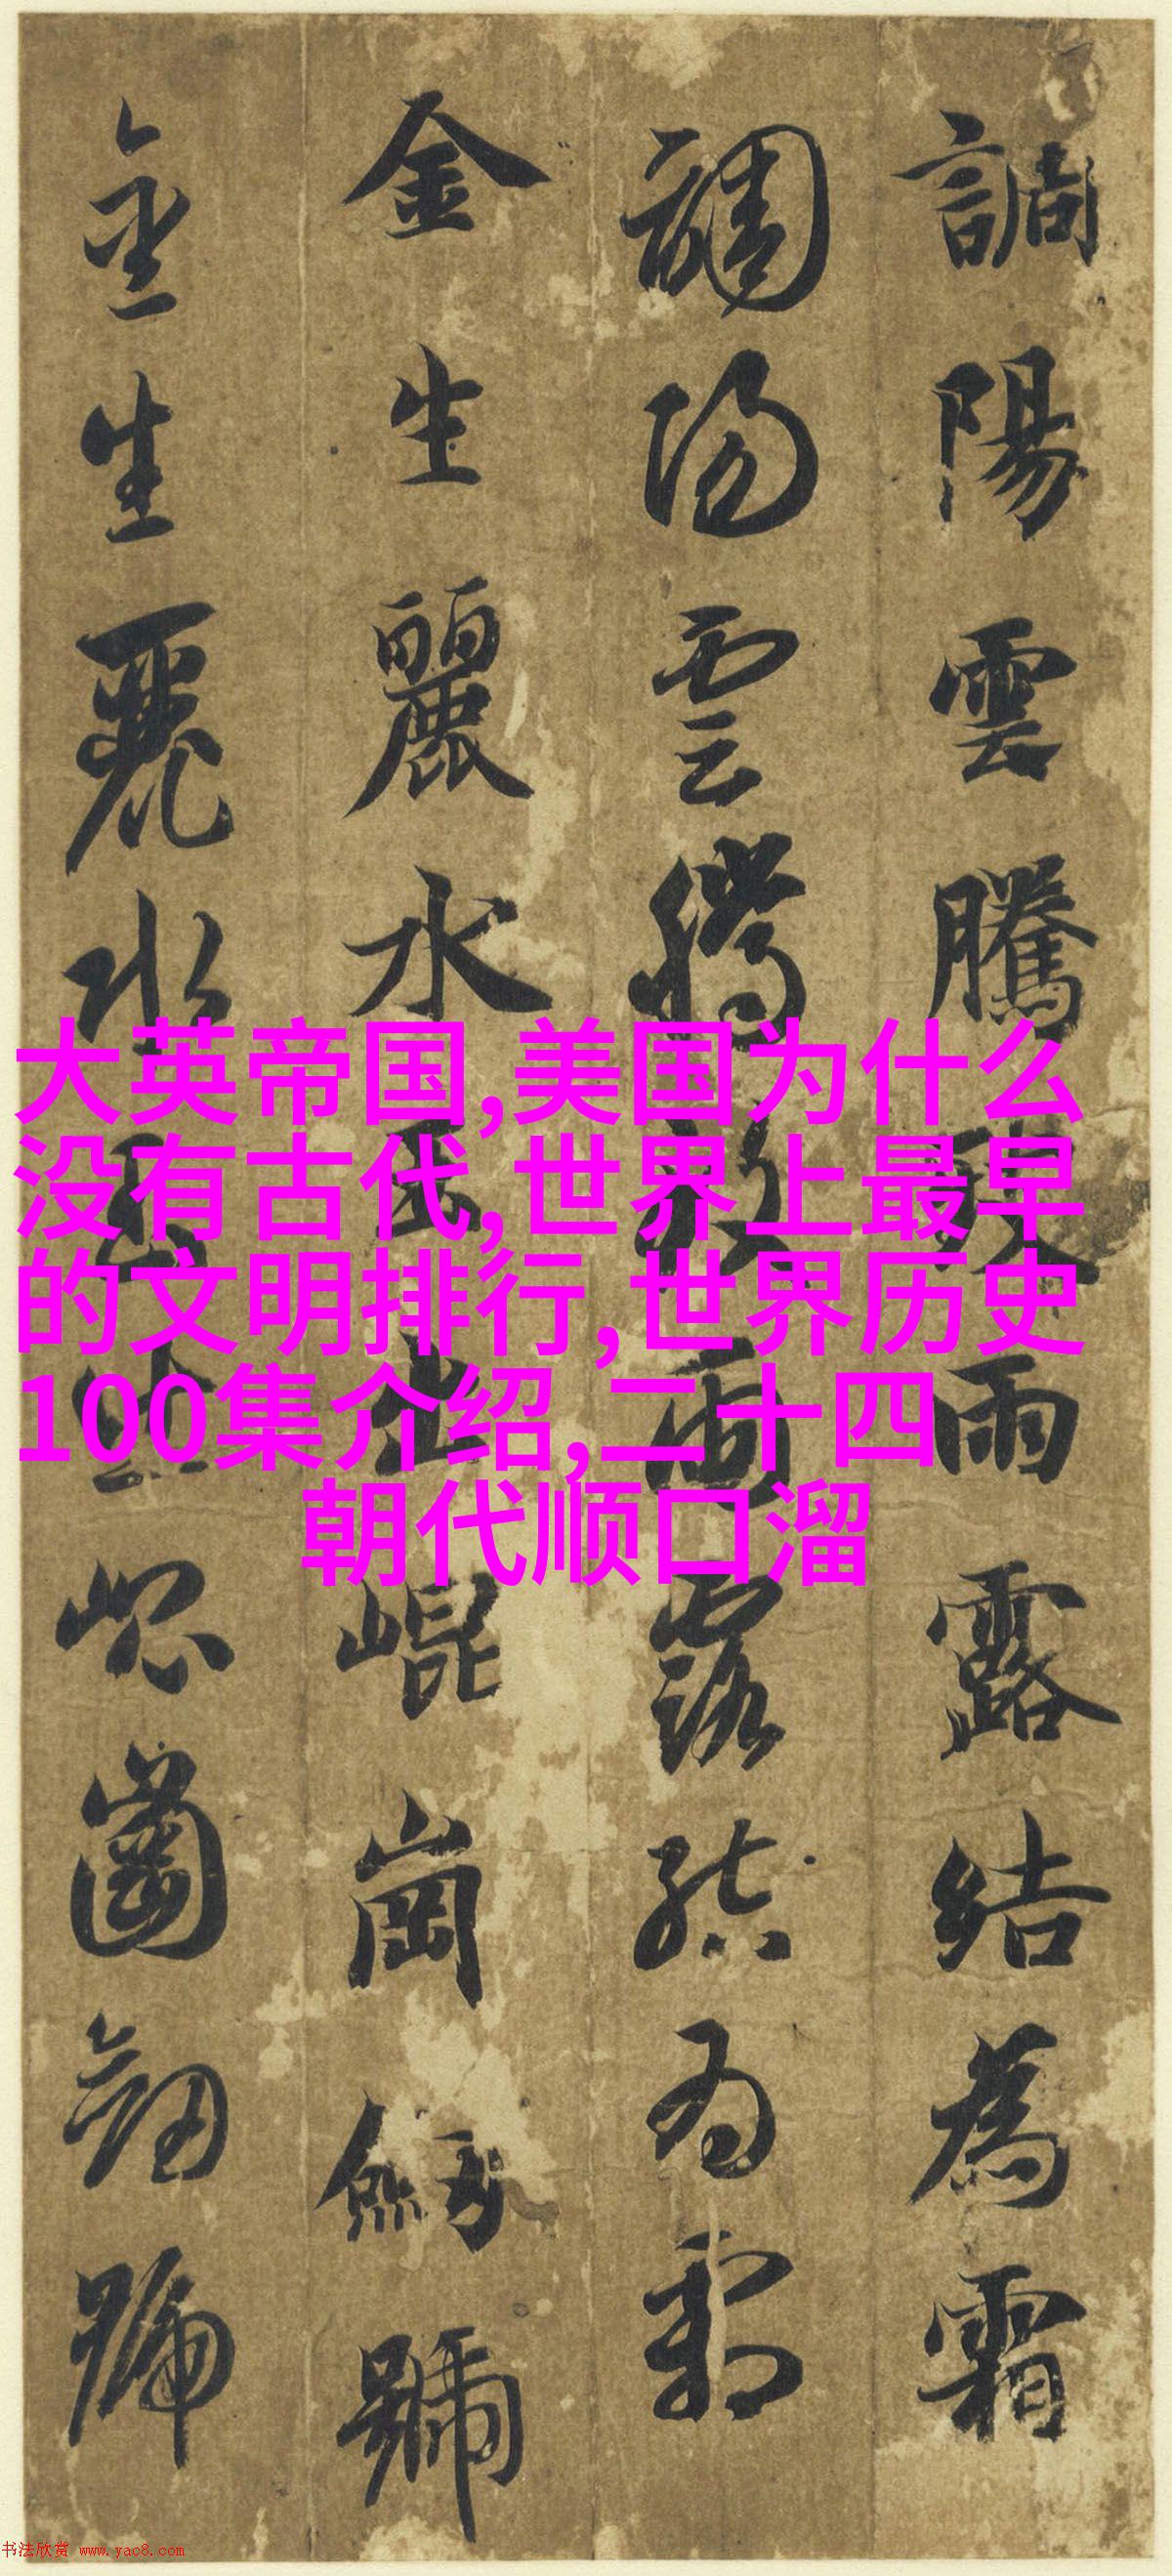 調陽雲騰致雨露結為霜
調陽雲騰致雨露結為霜
金生麗水玉出崐崗劒號
金生麗水玉出崐崗劒號
大英帝国,美国为什么
没有古代,世界上最早
的文明排行,世界历史
100集介绍,二十四
朝代顺口溜
书法欣赏 www.yac8.com